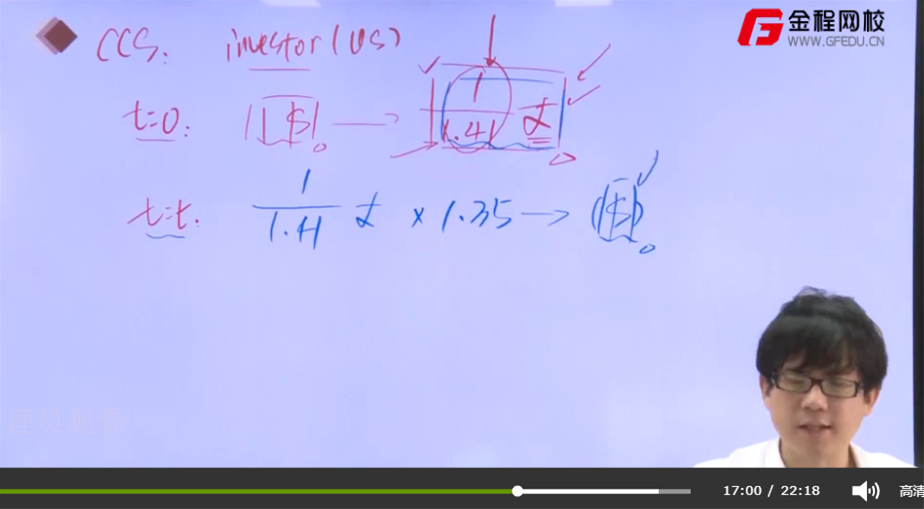 金程网校
WWW.GFEDU.CN
CCS: investor (US)
t=0: 1 $ → 1/1.41 £
t=t. 1/1.41 £ × 1.35 → $
17:00 / 22:18
高清